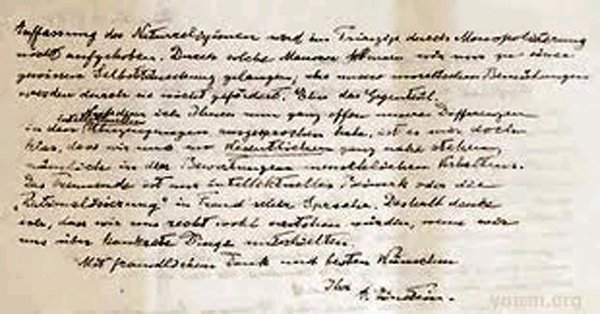 Auffassung der Naturreligionen wird im Prinzip durch Monopolisierung
nicht aufgehoben. Durch solche Mauern können wir nur zu einer
gewissen Selbsttäuschung gelangen; aber unsere moralischen Bemühungen
werden durch sie nicht gefördert. Eher das Gegenteil.
Nachdem ich Ihnen nun ganz offen unsere Differenzen
intellektuellen
in den Überzeugungen ausgesprochen habe, ist es mir doch
klar, dass wir uns im Wesentlichen ganz nahe stehen,
nämlich in den Bewertungen menschlichen Verhaltens.
Das Trennende ist nur intellektuelles Beiwerk oder die
„Rationalisierung" in Freud'scher Sprache. Deshalb denke
ich, dass wir uns recht wohl verstehen würden, wenn wir
uns über konkrete Dinge unterhielten.
Mit freundlichem Dank und besten Wünschen
Ihr
A. Einstein.
yomm.org